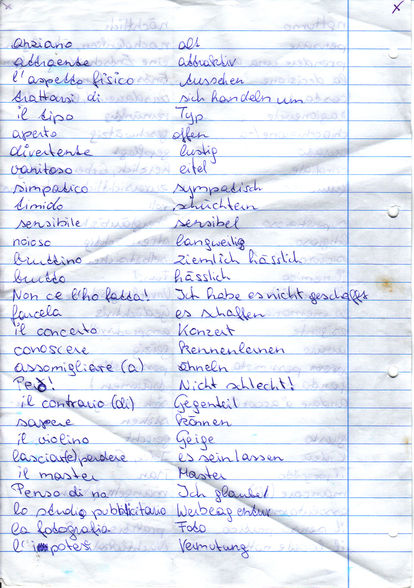 x x
anziano alt
attraente attraktiv
l'aspetto fisico Aussehen
trattarsi di sich handeln um
il tipo Typ
aperto offen
divertente lustig
vanitoso eitel
simpatico sympatisch
timido schüchtern
sensibile sensibel
noioso langweilig
bruttino ziemlich hässlich
brutto hässlich
Non ce l'ho fatta! Ich habe es nicht geschafft
farcela es schaffen
il concerto Konzert
conoscere kennenlernen
assomigliare (a) ähneln
Però! Nicht schlecht!
il contrario (di) Gegenteil
sapere können
il violino Geige
lasciar(e) perdere es sein lassen
il master Master
Penso di no Ich glaube!
lo studio pubblicitario Werbeagentur
la fotografia Foto
l'ipotesi Vermutung